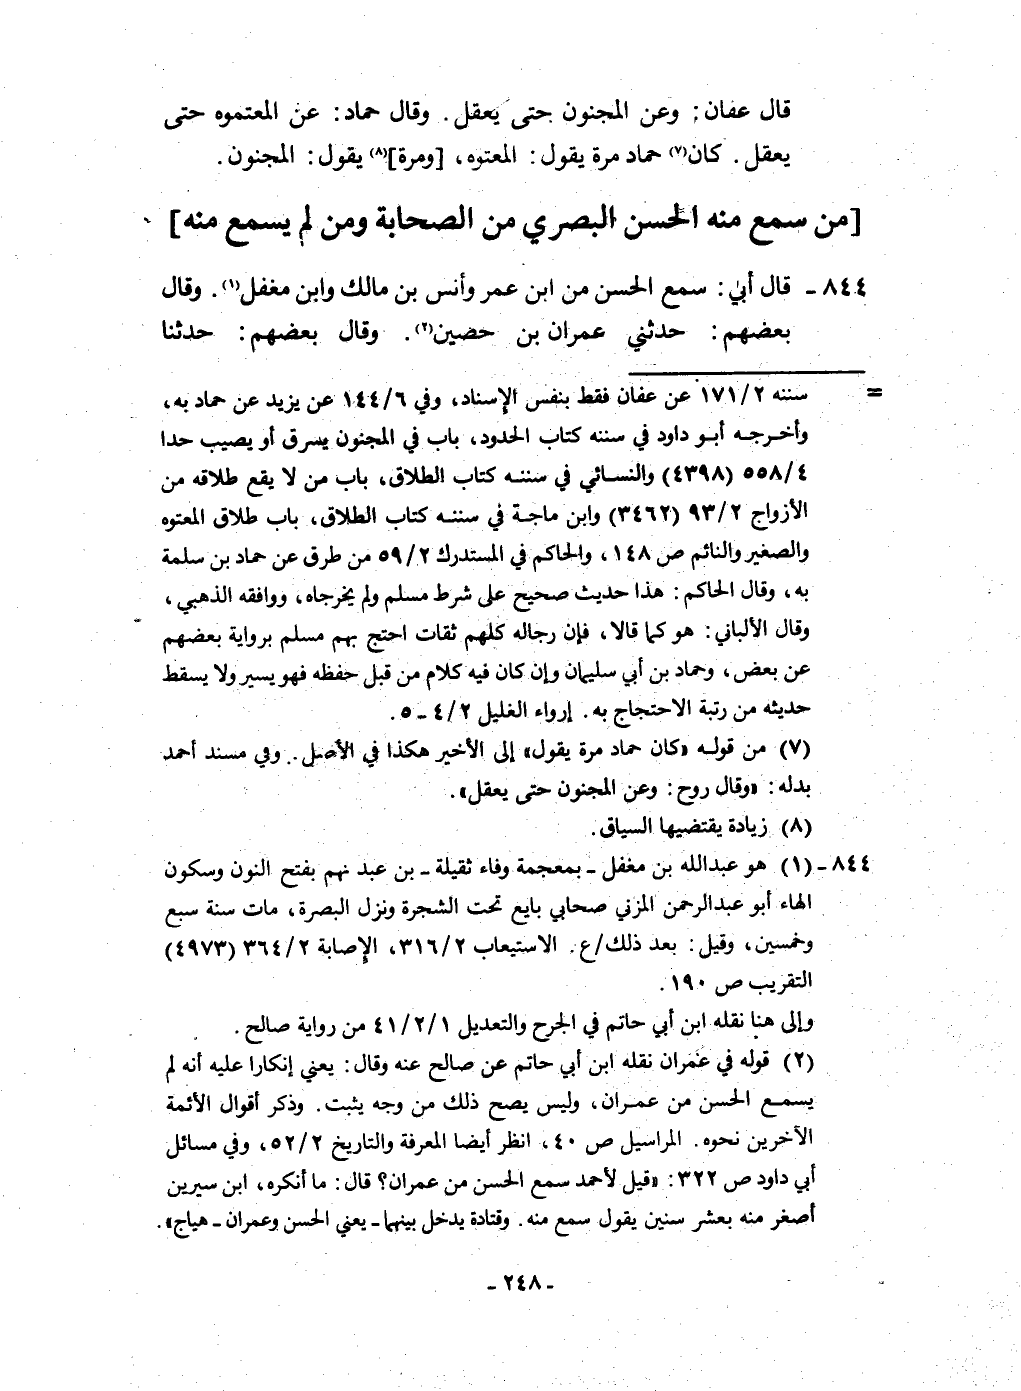 قال عفان: وعن المجنون حتى يعقل. وقال حماد: عن المعتموه حتى
يعقل. كان(٧) حماد مرة يقول: المعتوه، [ومرة](٨) يقول: المجنون.
[من سمع منه الحسن البصري من الصحابة ومن لم يسمع منه]
٨٤٤ ـ قال أبي: سمع الحسن من ابن عمر وأنس بن مالك وابن مغفل(١). وقال
بعضهم: حدثني عمران بن حصين(٢). وقال بعضهم: حدثنا
= سننه ١٧١/٢ عن عفان فقط بنفس الإسناد، وفي ١٤٤/٦ عن يزيد عن حماد به،
وأخرجه أبو داود في سننه كتاب الحدود، باب في المجنون يسرق أو يصيب حدا
٥٥٨/٤ (٤٣٩٨) والنسائي في سننه كتاب الطلاق، باب من لا يقع طلاقه من
الأزواج ٩٣/٢ (٣٤٦٢) وابن ماجة في سننه كتاب الطلاق، باب طلاق المعتوه
والصغير والنائم ص ١٤٨، والحاكم في المستدرك ٥٩/٢ من طرق عن حماد بن سلمة
به، وقال الحاكم: هذا حديث صحيح على شرط مسلم ولم يخرجاه، ووافقه الذهبي،
وقال الألباني: هو كما قالا، فإن رجاله كلهم ثقات احتج بهم مسلم برواية بعضهم
عن بعض، وحماد بن أبي سليمان وإن كان فيه كلام من قبل حفظه فهو يسير ولا يسقط
حديثه من رتبة الاحتجاج به. إرواء الغليل ٤/٢ ـ ٥.
(٧) من قوله «كان حماد مرة يقول» إلى الأخير هكذا في الأصل. وفي مسند أحمد
بدله: «وقال روح: وعن المجنون حتى يعقل».
(٨) زيادة يقتضيها السياق.
٨٤٤ ـ (١) هو عبدالله بن مغفل ـ بمعجمة وفاء ثقيلة ـ بن عبد نهم بفتح النون وسكون
الهاء أبو عبدالرحمن المزني صحابي بايع تحت الشجرة ونزل البصرة، مات سنة سبع
وخمسين، وقيل: بعد ذلك/ع. الاستيعاب ٣١٦/٢، الإصابة ٣٦٤/٢ (٤٩٧٣)
التقريب ص ١٩٠.
وإلى هنا نقله ابن أبي حاتم في الجرح والتعديل ٤١/٢/١ من رواية صالح.
(٢) قوله في عمران نقله ابن أبي حاتم عن صالح عنه وقال: يعني إنكارا عليه أنه لم
يسمع الحسن من عمران، وليس يصح ذلك من وجه يثبت. وذكر أقوال الأئمة
الآخرين نحوه. المراسيل ص ٤٠، انظر أيضا المعرفة والتاريخ ٥٢/٢، وفي مسائل
أبي داود ص ٣٢٢: «قيل لأحمد سمع الحسن من عمران؟ قال: ما أنكره، ابن سيرين
أصغر منه بعشر سنين يقول سمع منه. وقتادة يدخل بينهما ـ يعني الحسن وعمران ـ هياج».
ـ ٢٤٨ ـ